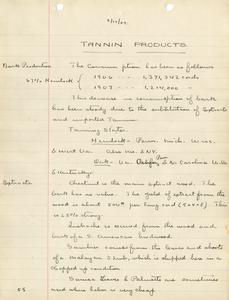 TANNIN PRODUCTS.
Bark Production The Consumption has been as follows
67% Hemlock 1906 -- 1,371,342 cords
1907 -- 1,214,000 "
This decrease in consumption of bark
has been steady due to the substitution of Extracts
and imported Tannin
Tanning States.
Hemlock = Penn. Mich. Wisc.
& West Va. Also Me. & N.Y.
Oak - Va. Calif. Penn. & N. Carolina W. Va
& Kentucky.
Extracts Chestnut is the main extract wood. The
bark has no value. The yield of extract from the
wood is about 500# per long cord
This is 25% strong.
Quebracho is derived from the wood and
bark of a S. American hardwood.
Gambier comes from the leaves and shoots
of a Malayan Shrub, which is shipped here in a
chopped up condition.
Sumac leaves & Palmetto are sometimes
used where labor is very cheap.